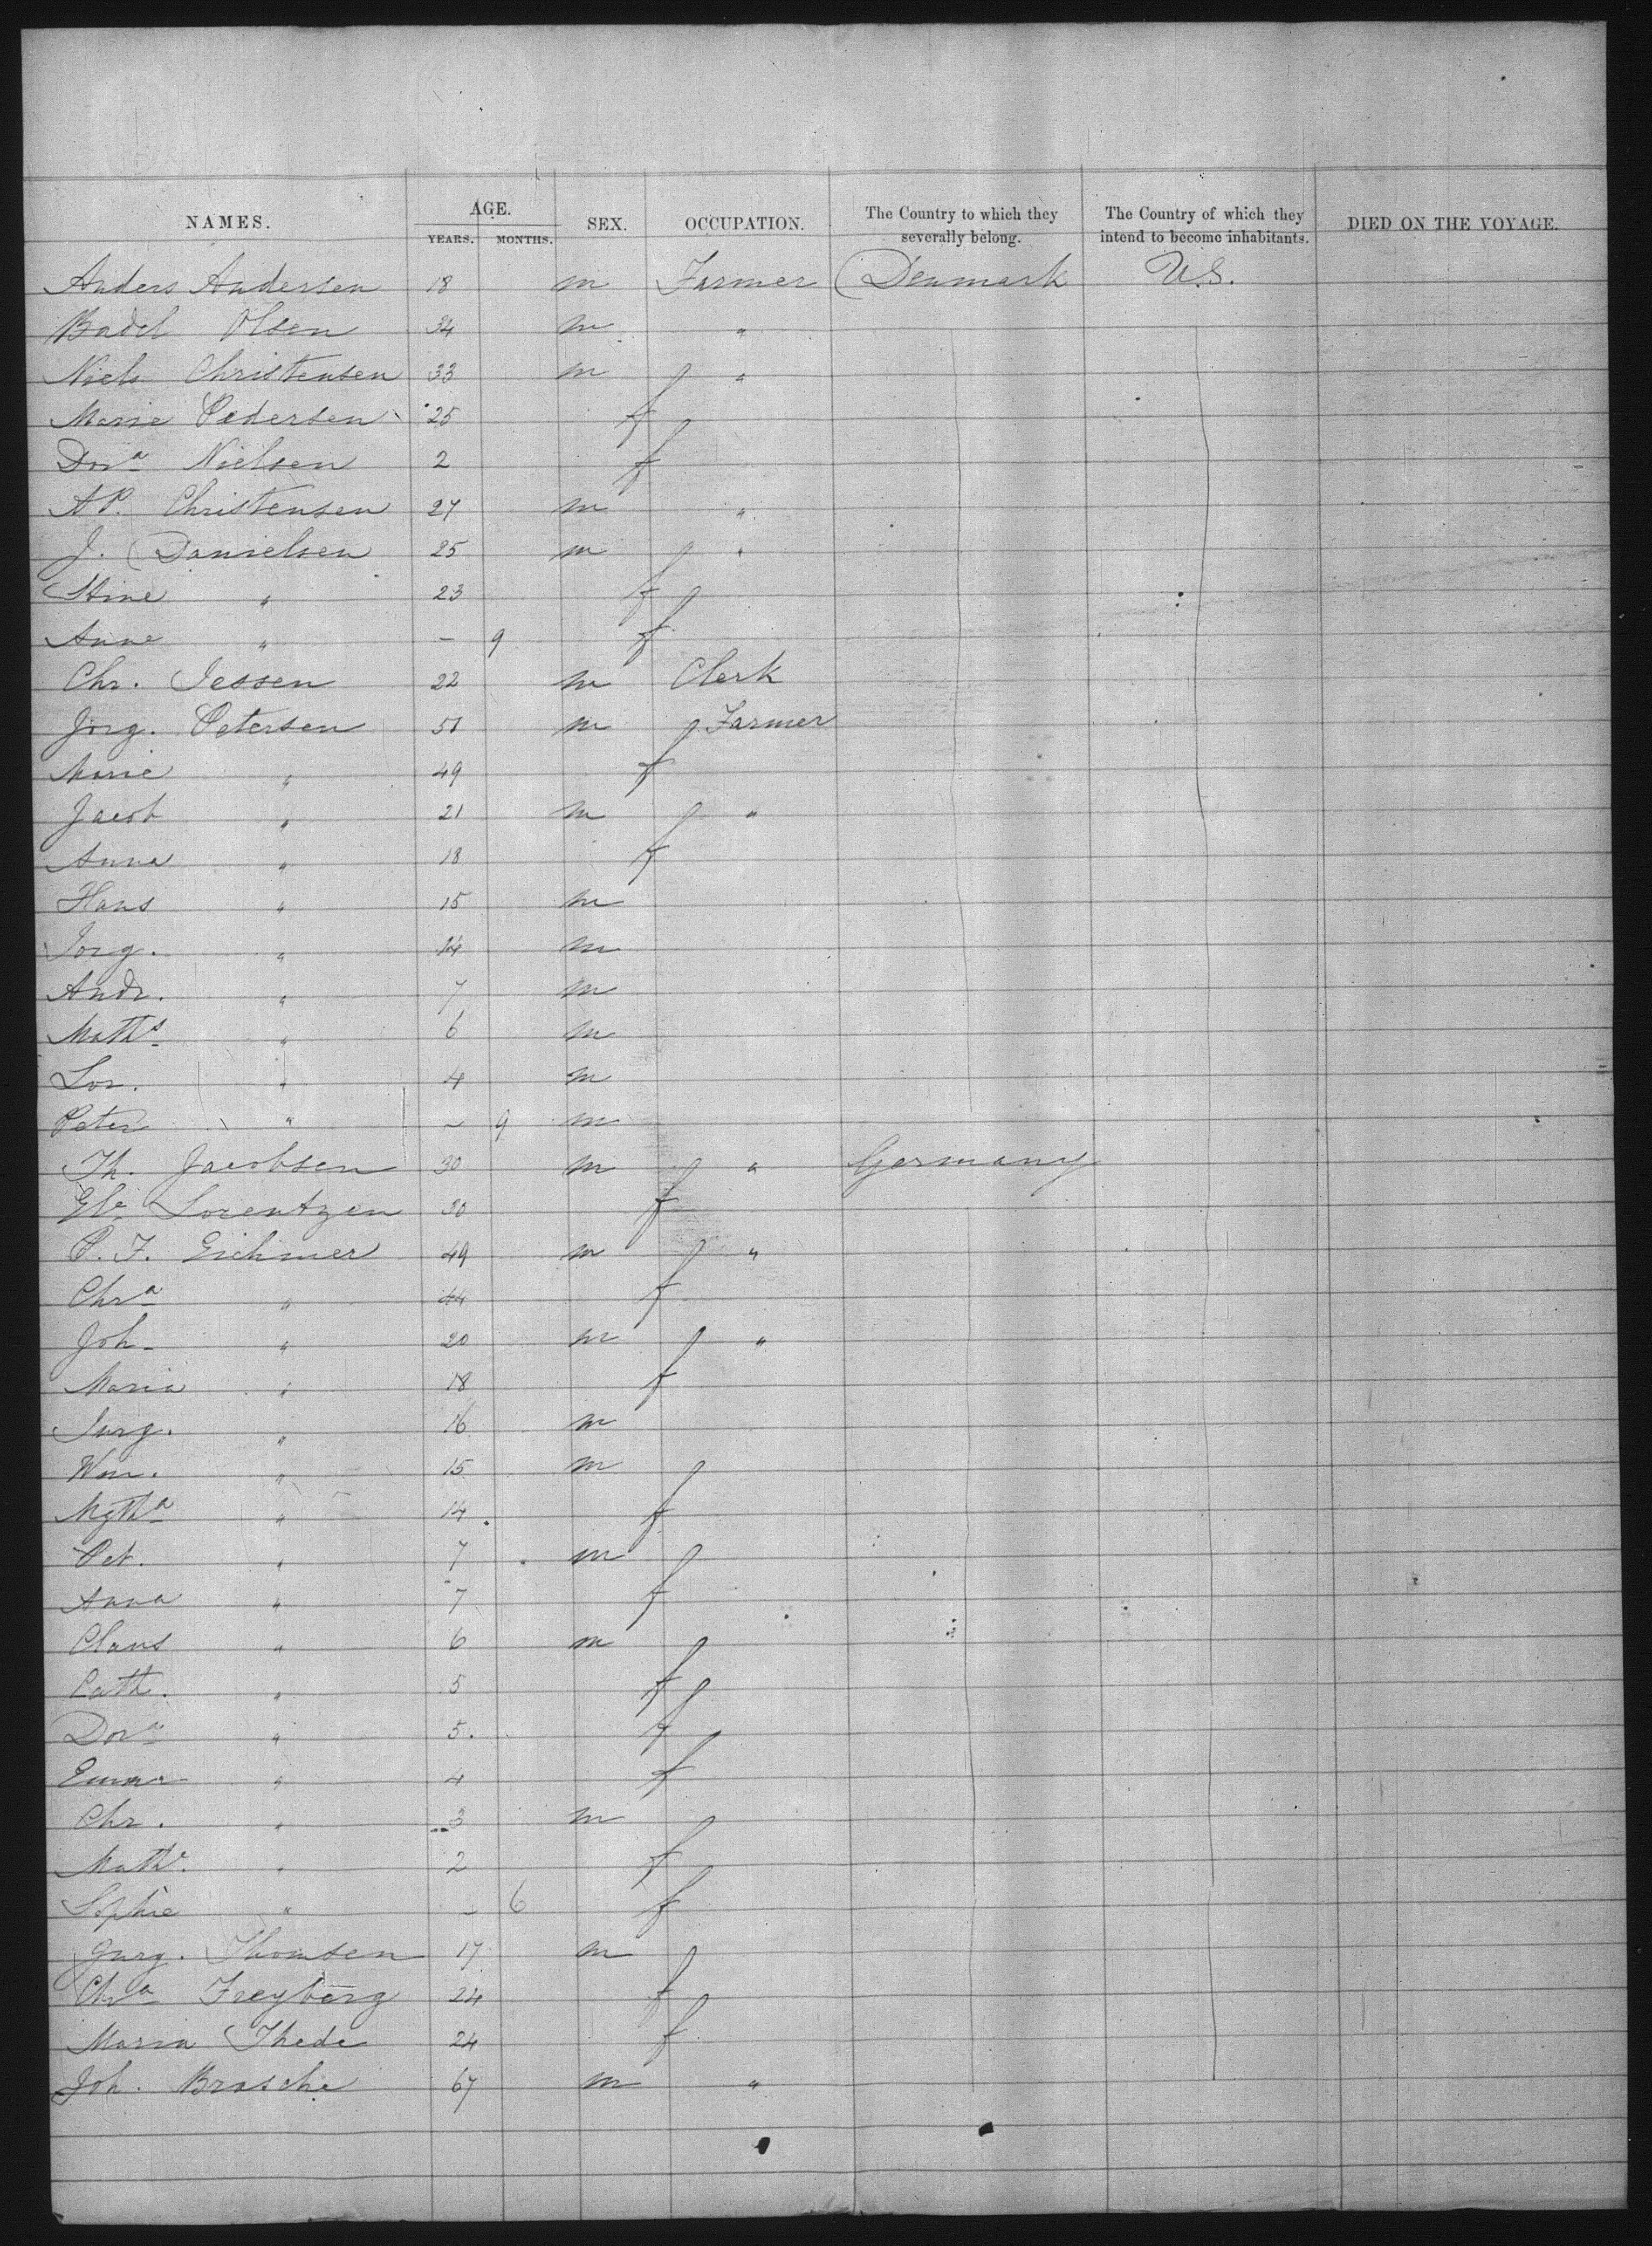 NAMES. AGE. SEX. OCCUPATION. The Country to which they severally belong. The Country of which they intend to become inhabitants. DIED ON THE VOYAGE.
YEARS. MONTHS.
Anders Andersen 18 m Farmer Denmark U.S.
Badel Olsen 34 m "
Niels Christensen 33 m "
Marie Pedersen 25 f
Dorª Nielsen 2 f
A P. Christensen 27 m "
J. Danielsen 25 m "
Stine " 23 f
Anne " – 9 f
Chr. Jessen 22 m Clerk
Jörg. Petersen 51 m Farmer
Marie " 49 f
Jacob " 21 m "
Anna " 18 f
Hans " 15 m
Jorg. " 14 m
Andr. " 7 m
Mathˢ " 6 m
Lor. " 4 m
Peter " – 9 m
Th. Jacobsen 30 m " Germany
Elᵉ Lorentzen 30 f
P. F. Eichmer 49 m "
Chrª " 44 f
Joh. " 20 m "
Maria " 18 f
Jurg. " 16 m
Wm. " 15 m
Mgthª " 14 f
Pet. " 7 m
Anna " 7 f
Claus " 6 m
Cath. " 5 f
Dorª " 5 f
Emma " 4 f
Chr. " 3 m
Mathᵉ " 2 f
Sophie " – 6 f
Jurg. Thomsen 17 m
Chrª Freyberg 24 f
Maria Thede 24 f
Joh. Brasche 67 m "